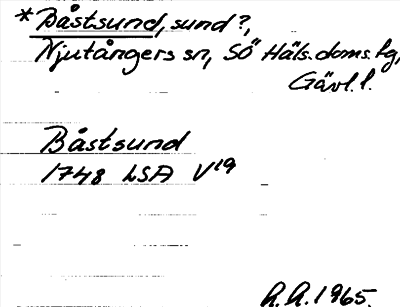 *Båstsund, sund?,
Njutångers sn, SÖ Häls. doms. hg,
Gävl. l.
Båstsund
1748 LSA V19
R.A. 1965.